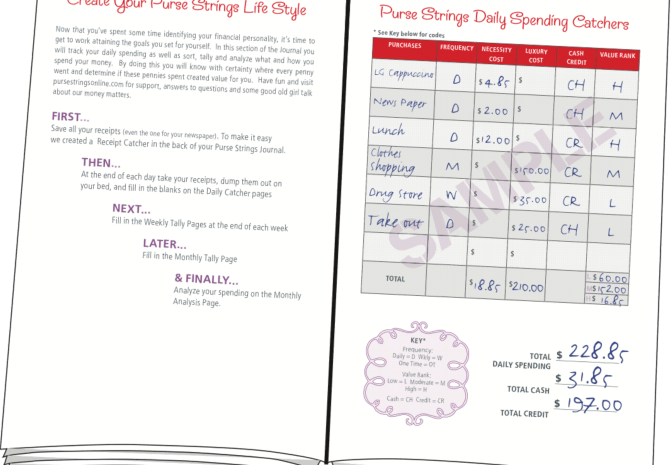 Create Your Purse Strings Life Style
Now that you've spent some time identifying your financial personality, it's time to
get to work attaining the goals you set for yourself. In this section of the Journal you
will track your daily spending as well as sort, tally and analyze what and how you
spend your money. By doing this you will know with certainty where every penny
went and determine if these pennies spent created value for you. Have fun and visit
pursestringsonline.com for support, answers to questions and some good old girl talk
about our money matters.
FIRST...
Save all your receipts (even the one for your newspaper). To make it easy
we created a Receipt Catcher in the back of your Purse Strings Journal.
THEN...
At the end of each day take your receipts, dump them out on
your bed, and fill in the blanks on the Daily Catcher pages
NEXT...
Fill in the Weekly Tally Pages at the end of each week
LATER...
Fill in the Monthly Tally Page
& FINALLY...
Analyze your spending on the Monthly
Analysis Page.
Purse Strings Daily Spending Catchers
* See Key below for codes
PURCHASES FREQUENCY NECESSITY COST LUXURY COST CASH CREDIT VALUE RANK
LG Cappuccino D $4.85 $ CH H
News Paper D $2.00 $ CH M
Lunch D $12.00 $ CR H
Clothes shopping M $ $150.00 CR M
Drug Store W $ $35.00 CR L
Take out D $ $25.00 CH L
$ $
TOTAL $18.85 $210.00
$60.00
$152.00
$16.85
SAMPLE
KEY*
Frequency:
Daily = D Wkly = W
One Time = OT
Value Rank:
Low = L Moderate = M
High = H
Cash = CH Credit = CR
TOTAL DAILY SPENDING $ 228.85
TOTAL CASH $ 31.85
TOTAL CREDIT $ 197.00